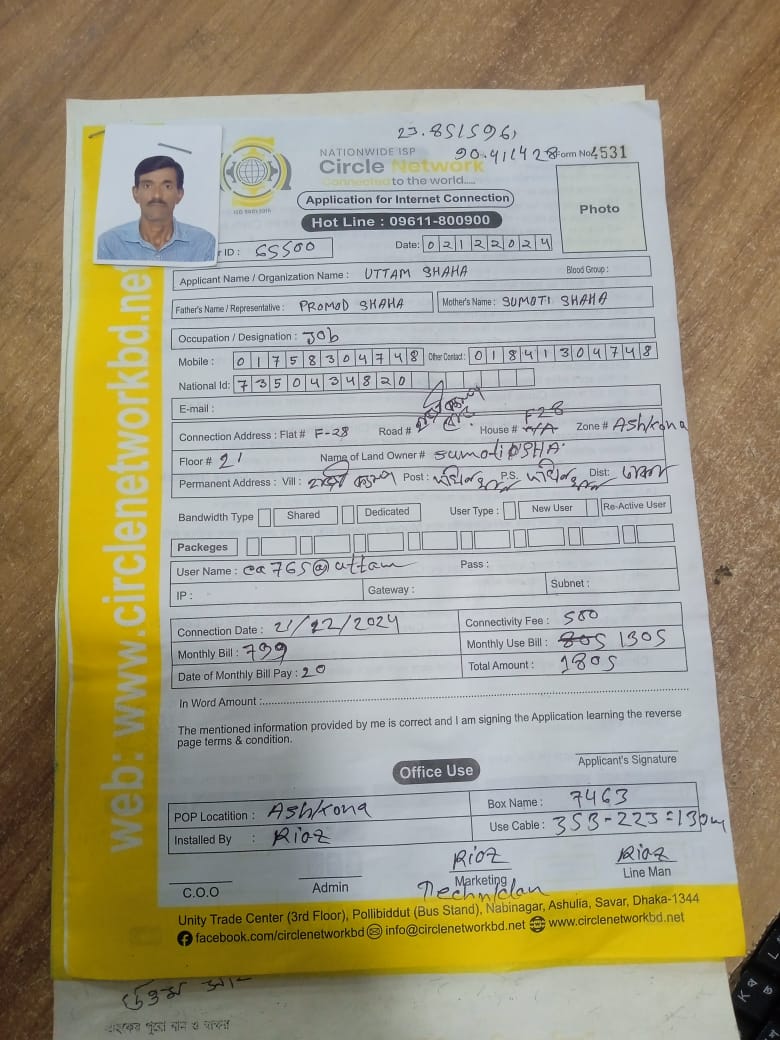 23.851596,
90.411428
NATIONWIDE ISP
Circle Network
Connected to the world.....
Form No 4531
ISO 9001:2015
Application for Internet Connection
Photo
Hot Line : 09611-800900
r ID : 65500 Date: 02122024
Applicant Name / Organization Name : UTTAM SHAHA Blood Group :
Father's Name / Representative : PROMOD SHAHA Mother's Name : SUMOTI SHAHA
Occupation / Designation : Job
Mobile : 01758304748 Other Contact : 01841304748
National Id: 7350434820
E-mail :
Connection Address : Flat # F-28 Road # House # N/A F28 Zone # Ashkona
Floor # 2' Name of Land Owner #
Permanent Address : Vill : Post : P.S. Dist: ঢাকা
Bandwidth Type Shared Dedicated User Type : New User Re-Active User
Packeges
User Name : ca765@uttam Pass :
IP : Gateway : Subnet :
Connection Date : 21/12/2024 Connectivity Fee : 500
Monthly Bill : 799 Monthly Use Bill : 805 1305
Date of Monthly Bill Pay : 20 Total Amount : 1805
In Word Amount :
The mentioned information provided by me is correct and I am signing the Application learning the reverse
page terms & condition.
Applicant's Signature
Office Use
POP Locatition : Ashkona Box Name : 7463
Installed By : Riaz Use Cable : 353-223=130m
Riaz Riaz
C.O.O Admin Marketing Line Man
Technician
Unity Trade Center (3rd Floor), Pollibiddut (Bus Stand), Nabinagar, Ashulia, Savar, Dhaka-1344
facebook.com/circlenetworkbd info@circlenetworkbd.net www.circlenetworkbd.net
web: www.circlenetworkbd.net
গ্রাহকের পুরো নাম ও স্বাক্ষর